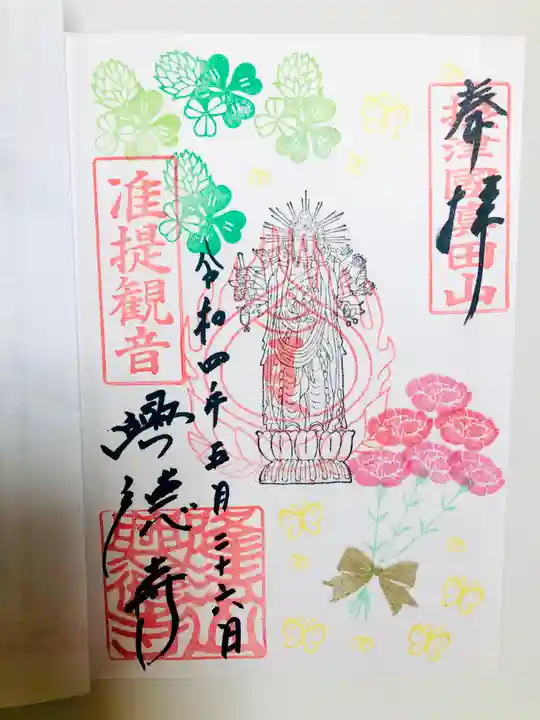 奉拝
摂津國真田山
令和四年五月二十六日
准提観音
興徳寺